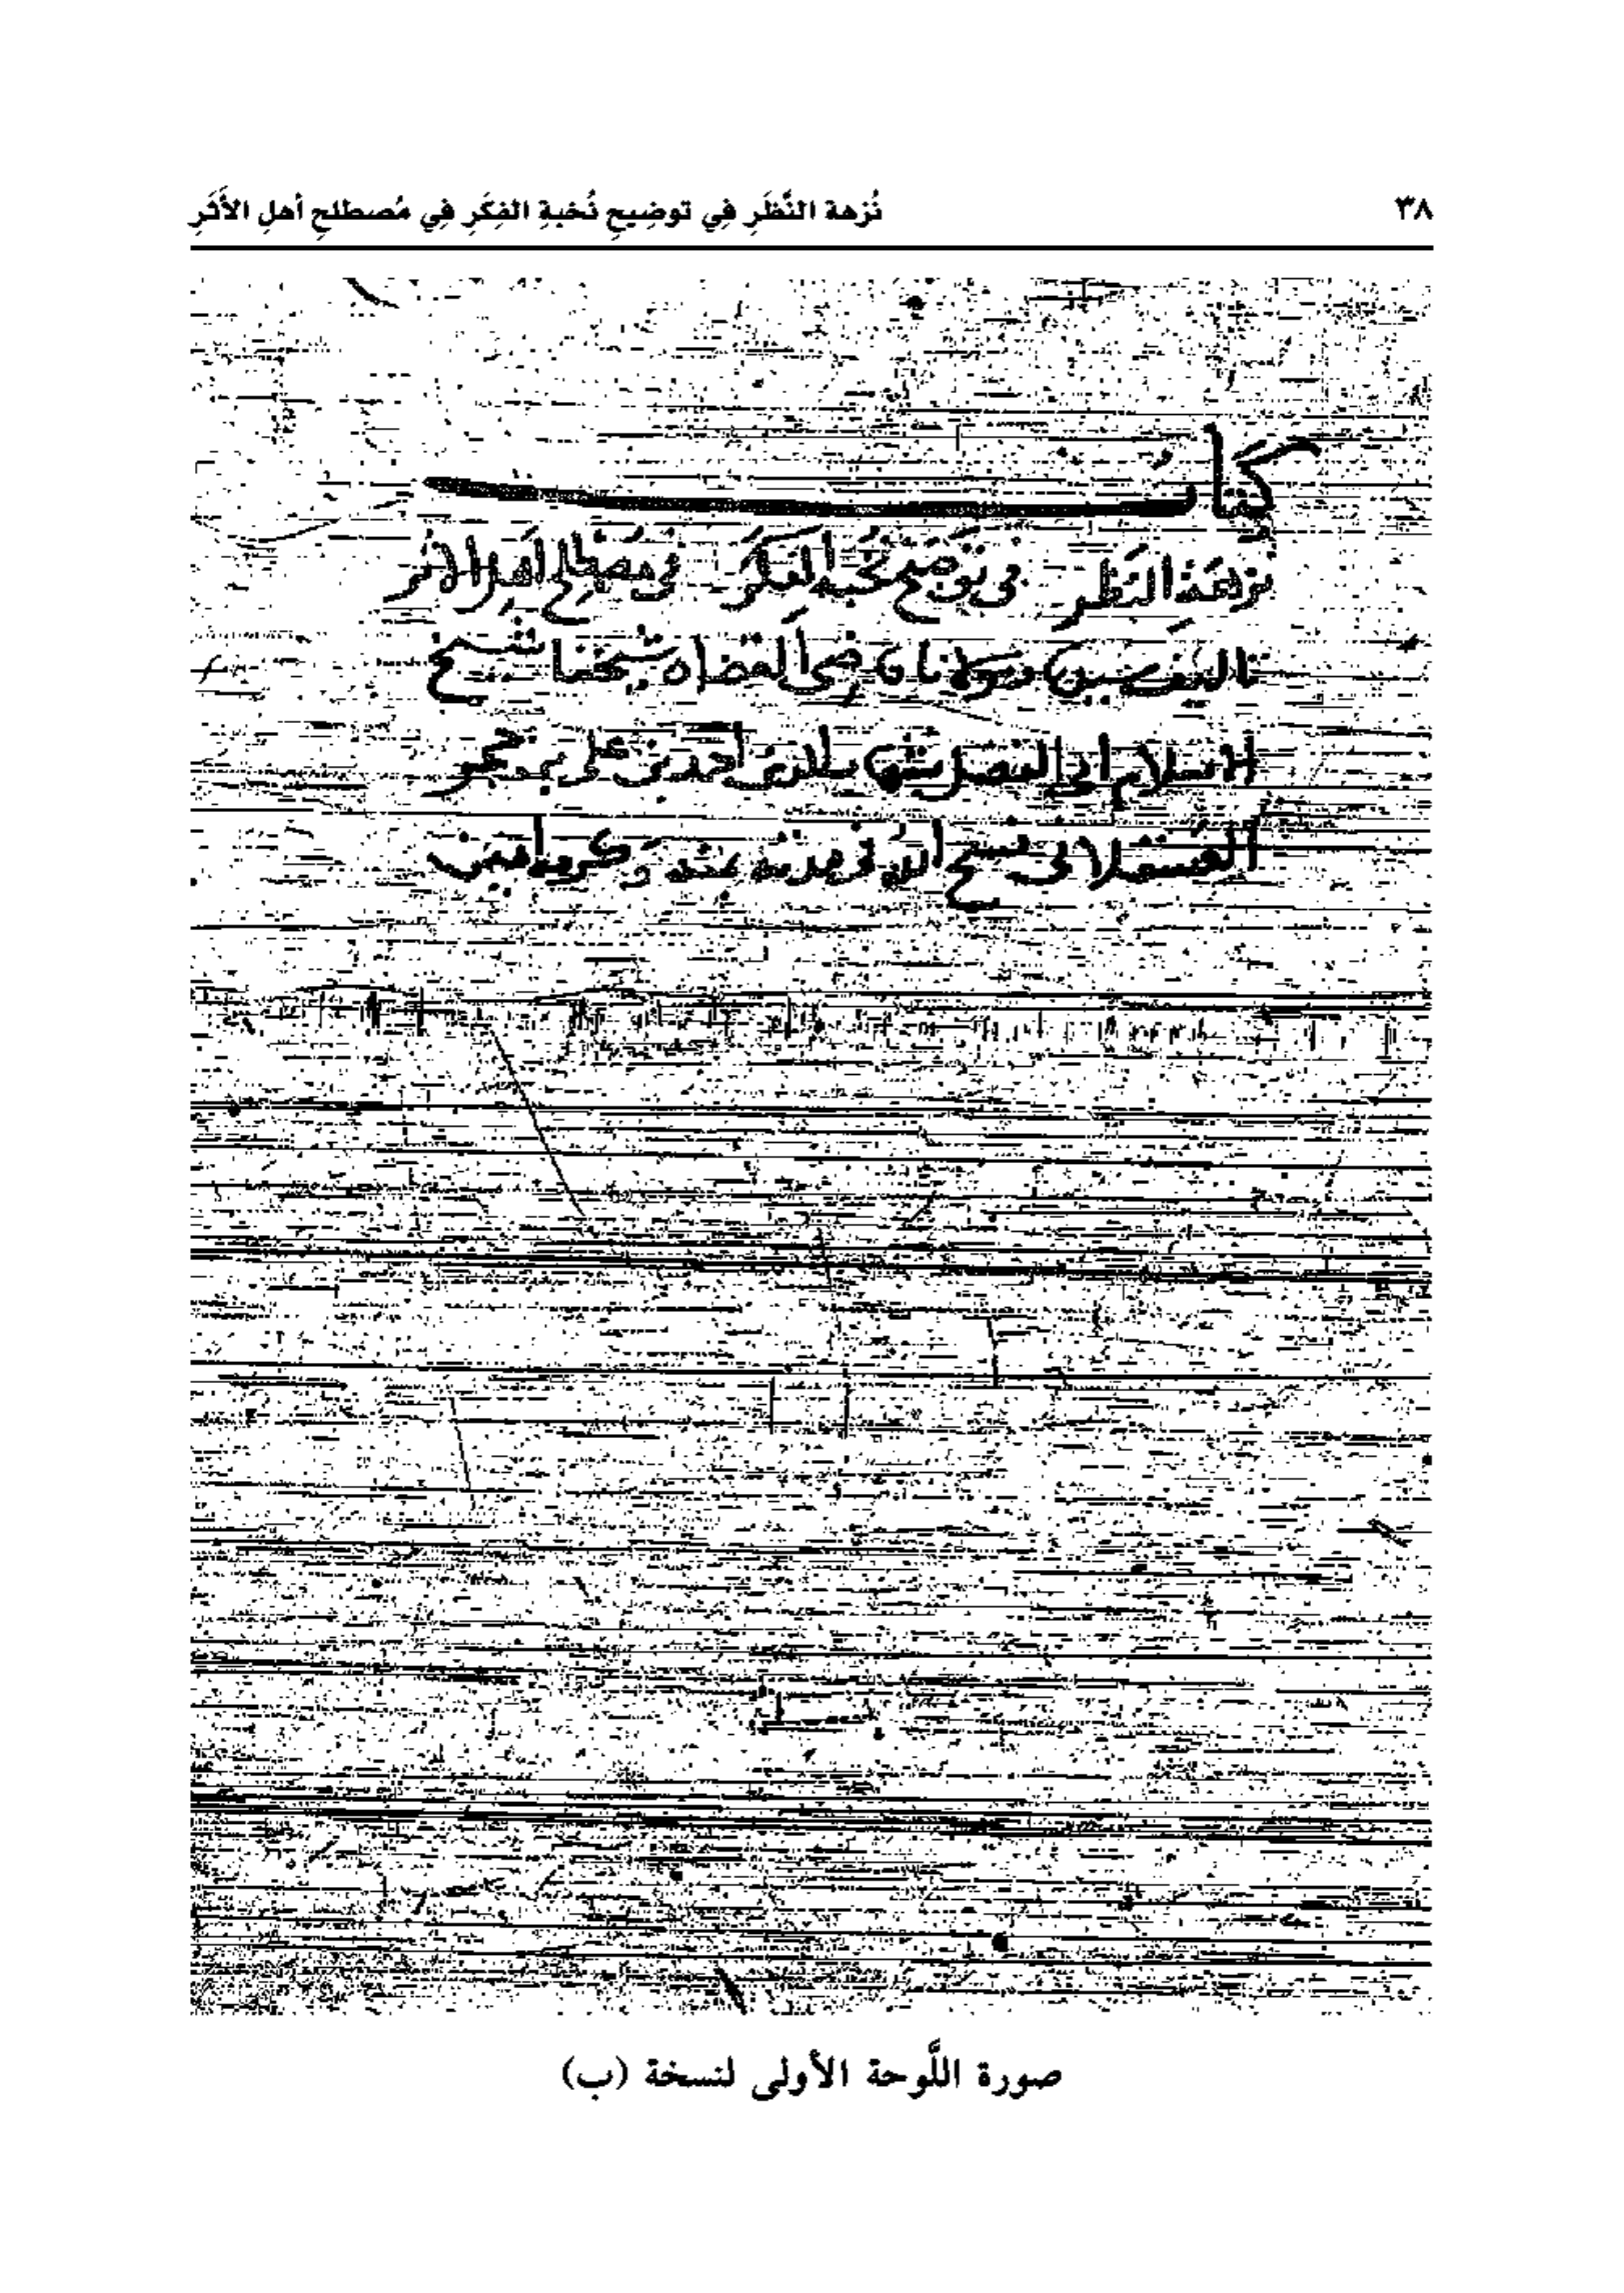 ٣٨ نُزهة النَّظَرِ فِي توضِيحِ نُخبةِ الفِكَرِ فِي مُصطلحِ أهلِ الأَثَرِ
كتاب
نزهة النظر في توضيح نخبة الفكر في مصطلح اهل الاثر
سيدنا ومولانا قاضى القضاه شيخنا شيخ
الاسلام ابى الفضل شهاب الدين احمد بن على بن حجر
العسقلانى فسح الله فى مدته بمنه وكرمه امين
صورة اللَّوحة الأولى لنسخة (ب)